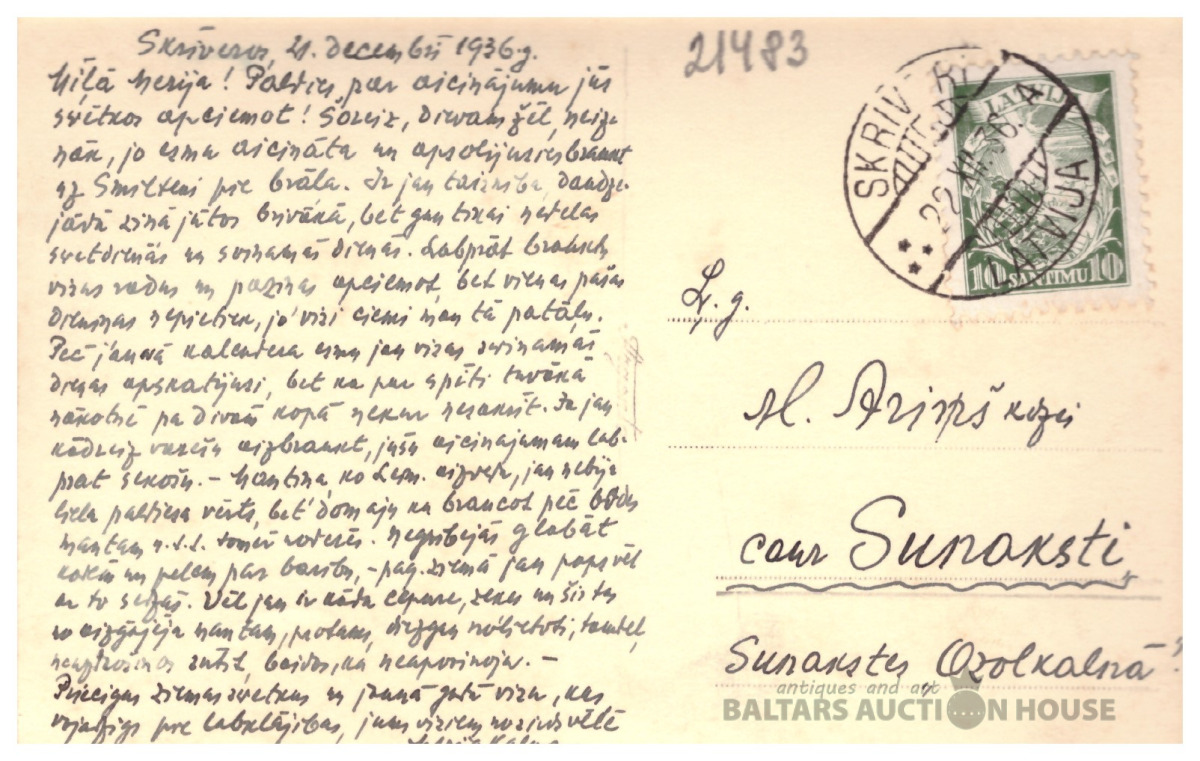 Skrīveros, 21. decembrī 1936.g.
Mīļā Merija! Paldies par aicinājumu jūs
svētkos apciemot! Šoreiz, Dievamžēl, neiz-
nāk, jo esmu aicināta un apsolījusies braukt
uz Smilteni pie brāļa. Ir jau taisnība, daudze-
jādā ziņā jūtos brīvāka, bet gan tikai nedēļas
svētdienās un svinamās dienās. Labprāt brauktu
visus radus un paziņas apciemot, bet vienas pašas
dieniņas nepietiek, jo visi ciemi man tā patālu.
Pēc jaunā kalendāra esmu jau visas svinamās
dienas apskatījusi, bet ka par spīti tuvākā
nākotnē pa divām kopā nekur nesanāk. Ja jau
kādreiz varēšu aizbraukt, jūsu aicinājumam lab-
prāt sekošu. – Mantiņa, ko aizveda, jau nebija
liela paldiesa vērts, bet domāju ka braucot pēc
mantām u.t.t. tomēr noderēs. Negribējās glabāt
kokiem un pelēm par barību, – pag. ziemā jau paps vēl
ar to segās. Vēl jau ir kāda cepure, zeķes un šis tas
no aizgājēja mantām, protams, diezgan nolietoti, tamdēļ
neuzdrošinos sūtīt, baidos, ka neapvainoja. –
Priecīgus ziemassvētkus un jaunā gadā visu, kas
vajadzīgs pie labklājības, jums visiem no sirds vēlē
21483
SKRĪVERI
22 XII 36
LATVIJA
LATVIJA
10 SANTIMU 10
Ļ. g.
M. Ariņš kdzei
caur Sunaksti,
Sunakstes Ozolkalnā
antiques and art
BALTARS AUCTION HOUSE